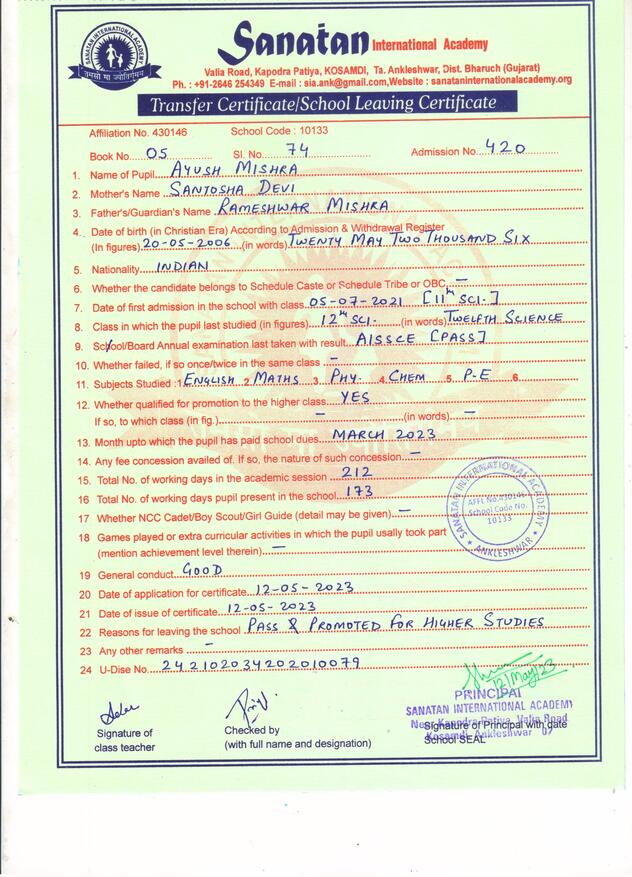 SANATAN INTERNATIONAL ACADEMY
तमसो मा ज्योतिर्गमय
Sanatan International Academy
Valia Road, Kapodra Patiya, KOSAMDI, Ta. Ankleshwar, Dist. Bharuch (Gujarat)
Ph. : +91-2646 254349 E-mail : sia.ank@gmail.com,Website : sanataninternationalacademy.org
Transfer Certificate/School Leaving Certificate
Affiliation No. 430146 School Code : 10133
Book No. 05 Sl. No. 74 Admission No. 420
1. Name of Pupil AYUSH MISHRA
2. Mother's Name SANTOSHA DEVI
3. Father's/Guardian's Name RAMESHWAR MISHRA
4. Date of birth (in Christian Era) According to Admission & Withdrawal Register
(In figures) 20-05-2006 (in words) TWENTY MAY TWO THOUSAND SIX
5. Nationality INDIAN
6. Whether the candidate belongs to Schedule Caste or Schedule Tribe or OBC. —
7. Date of first admission in the school with class 05-07-2021 [11th SCI.]
8. Class in which the pupil last studied (in figures) 12th SCI. (in words) TWELFTH SCIENCE
9. School/Board Annual examination last taken with result AISSCE [PASS]
10. Whether failed, if so once/twice in the same class —
11. Subjects Studied :1 ENGLISH 2 MATHS 3. PHY. 4. CHEM 5. P-E 6.
12. Whether qualified for promotion to the higher class YES
If so, to which class (in fig.) — (in words) —
13. Month upto which the pupil has paid school dues. MARCH 2023
14. Any fee concession availed of. If so, the nature of such concession —
15. Total No. of working days in the academic session 212
16 Total No. of working days pupil present in the school 173
17 Whether NCC Cadet/Boy Scout/Girl Guide (detail may be given) —
18 Games played or extra curricular activities in which the pupil usally took part
(mention achievement level therein) —
SANATAN INTERNATIONAL ACADEMY
AFFL No.430146
School Code No.
10133
ANKLESHWAR
19 General conduct GOOD
20 Date of application for certificate 12-05-2023
21 Date of issue of certificate 12-05-2023
22 Reasons for leaving the school PASS & PROMOTED FOR HIGHER STUDIES
23 Any other remarks —
24 U-Dise No. 242102034202010079
12/May/23
PRINCIPAL
SANATAN INTERNATIONAL ACADEMY
Near Kapodra Patiya, Valia Road
Kosamdi, Ankleshwar
Signature of class teacher
Checked by
(with full name and designation)
Signature of Principal with date
School SEAL